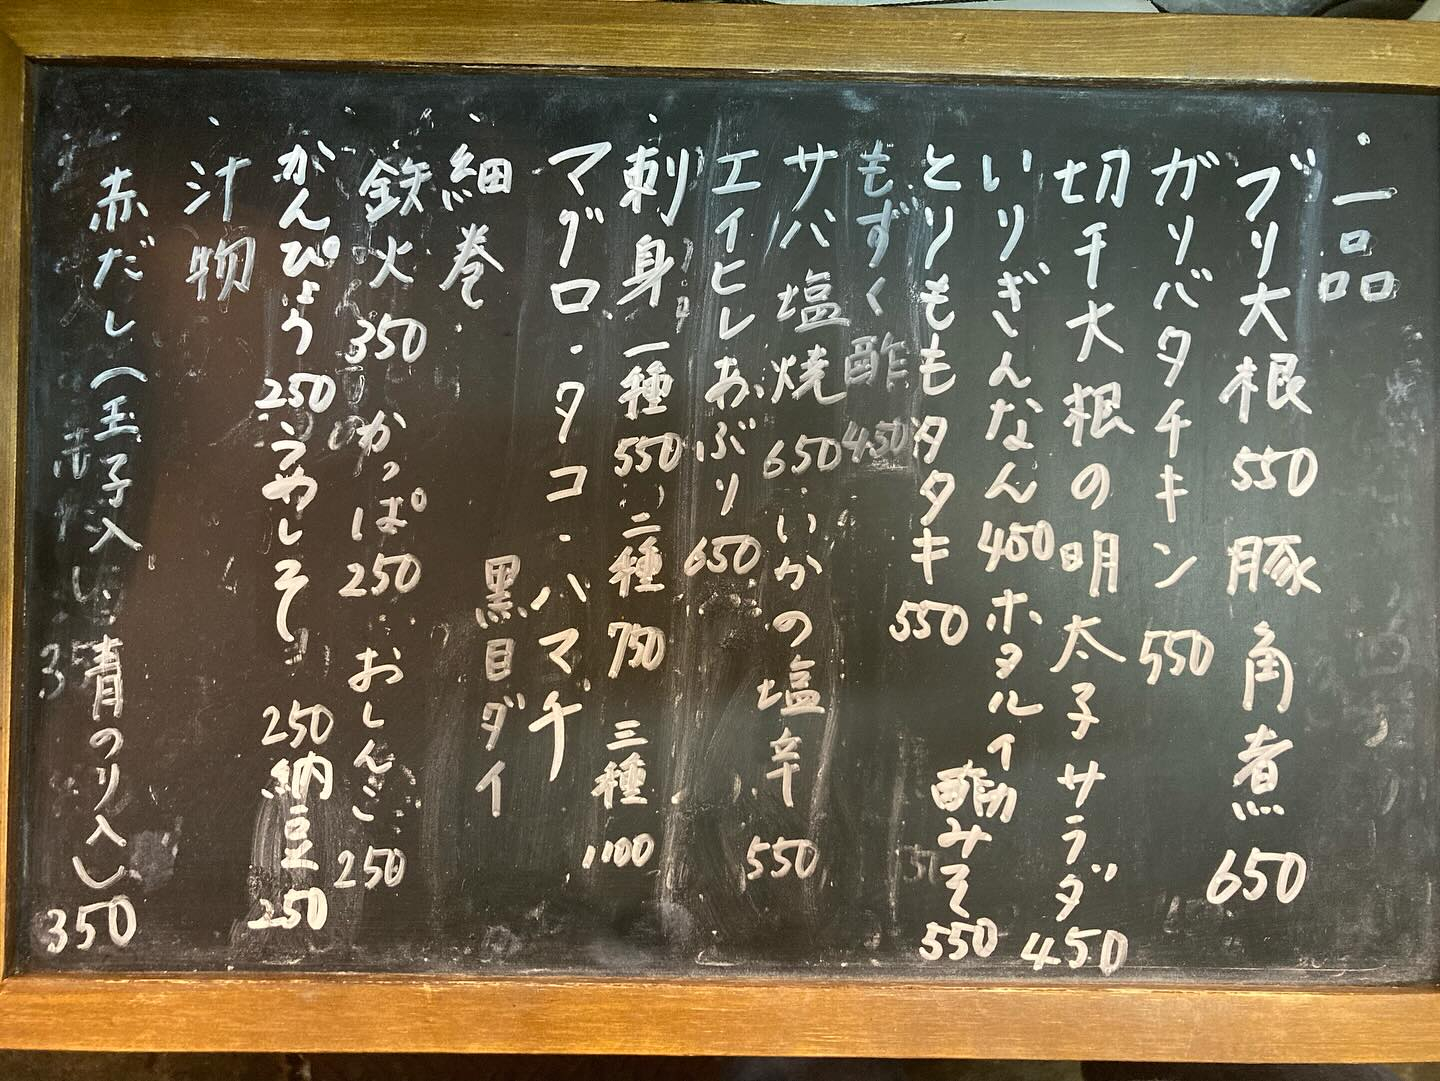 ・一品
ブリ大根 550 豚角煮 650
ガリバタチキン 550
切干大根の明太子サラダ 450
いりぎんなん 450 ホタルイカ酢みそ 550
とりももタタキ 550
もずく酢 450
サバ塩焼 650・いかの塩辛 550
エイヒレあぶり 650
・刺身 一種 550 二種 750 三種 1100
マグロ・タコ・ハマチ
黒目ダイ
・細巻
鉄火 350 かっぱ 250・おしんこ 250
かんぴょう 250・うめしそ 250 納豆 250
・汁物
赤だし(玉子入り 青のり入り) 350